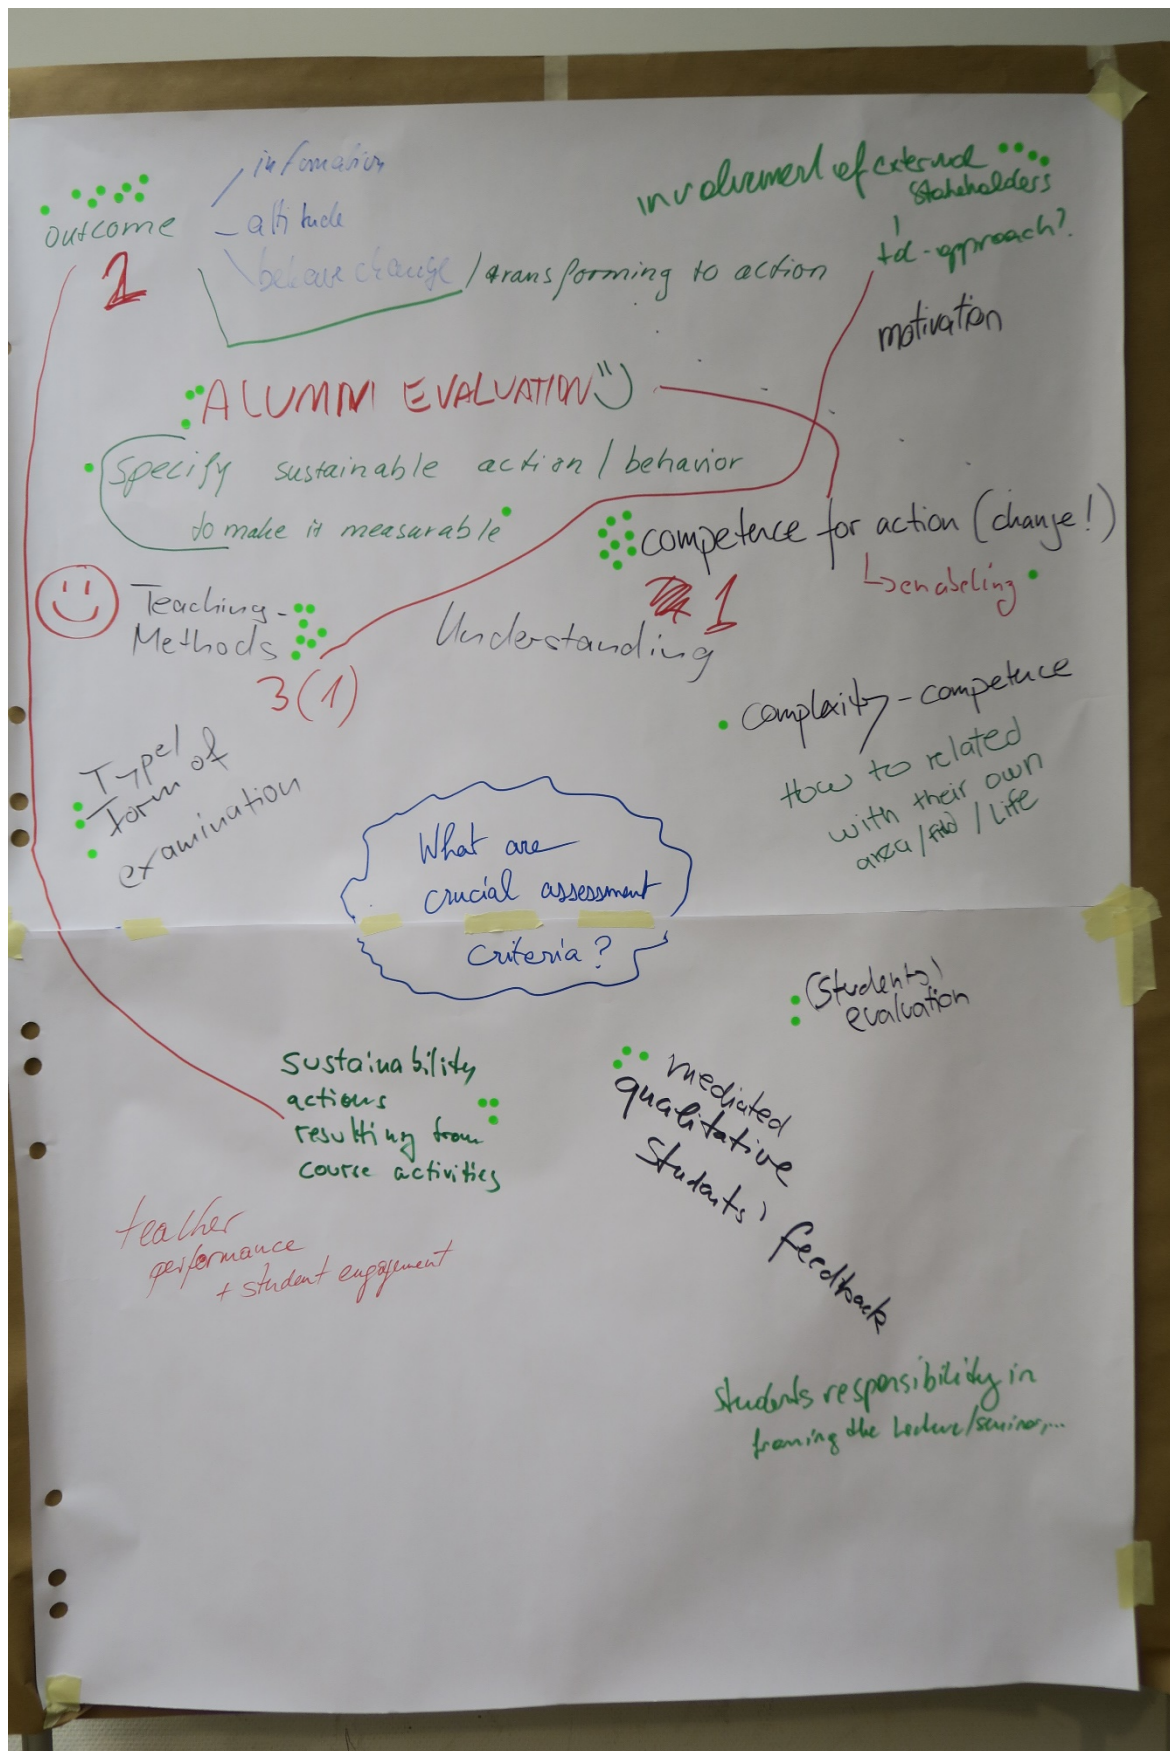 outcome
information
attitude
behave change / transforming to action
2
involvement of external
stakeholders
td-approach?
motivation
ALUMNI EVALUATION
specify sustainable action / behavior
to make it measurable
competence for action (change!)
enabeling
1
Teaching-
Methods
3 (1)
Understanding
complexity-competence
How to related
with their own
area / field / Life
Type/
form of
examination
What are
crucial assessment
criteria?
(Students)
evaluation
sustainability
actions
resulting from
course activities
mediated
qualitative
students' feedback
teacher
performance
+ student engagement
students responsibility in
framing the lecture/seminar,...